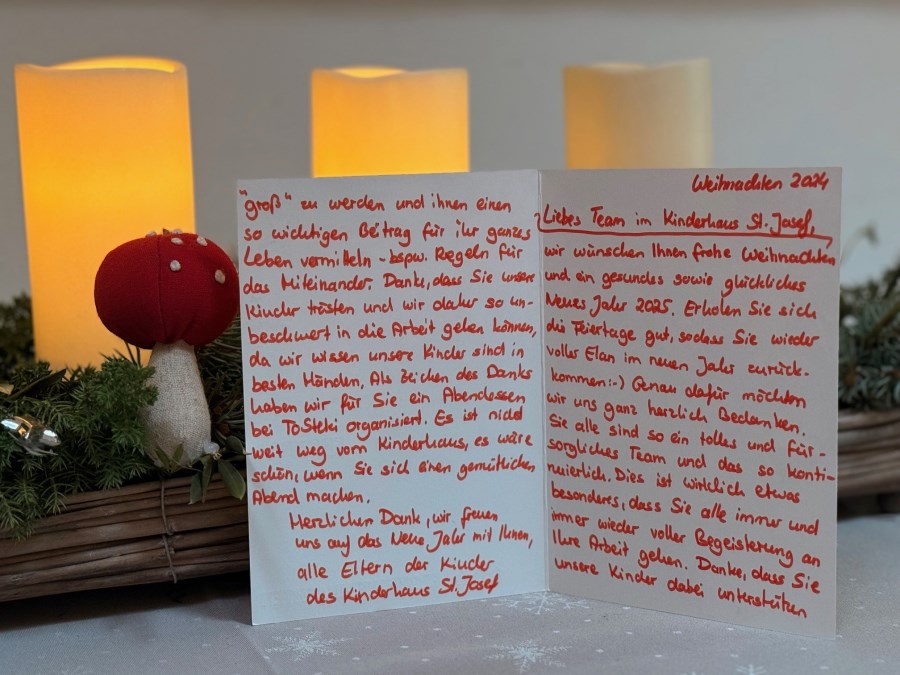 Weihnachten 2024
Liebes Team im Kinderhaus St. Josef,
wir wünschen Ihnen frohe Weihnachten
und ein gesundes sowie glückliches
Neues Jahr 2025. Erholen Sie sich
die Feiertage gut, sodass Sie wieder
voller Elan im neuen Jahr zurück-
kommen :-) Genau dafür möchten
wir uns ganz herzlich Bedanken.
Sie alle sind so ein tolles und für-
sorgliches Team und das so konti-
nuierlich. Dies ist wirklich etwas
besonderes, dass Sie alle immer und
immer wieder voller Begeisterung an
Ihre Arbeit gehen. Danke, dass Sie
unsere Kinder dabei unterstützen
"groß" zu werden und ihnen einen
so wichtigen Beitrag für ihr ganzes
Leben vermitteln - bspw. Regeln für
das Miteinander. Danke, dass Sie unsere
Kinder trösten und wir daher so un-
beschwert in die Arbeit gehen können,
da wir wissen unsere Kinder sind in
besten Händen. Als Zeichen des Danks
haben wir für Sie ein Abendessen
bei ToSteki organisiert. Es ist nicht
weit weg vom Kinderhaus, es wäre
schön, wenn Sie sich einen gemütlichen
Abend machen.
Herzlichen Dank, wir freuen
uns auf das Neue Jahr mit Ihnen,
alle Eltern der Kinder
des Kinderhaus St. Josef